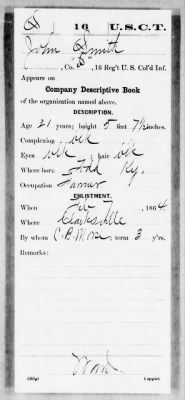 S 16 U.S.C.T.
John Smith
, Co. "B", 16 Reg't U. S. Col'd Inf.
Appears on
Company Descriptive Book
of the organization named above.
DESCRIPTION.
Age 21 years; height 5 feet 7½ inches.
Complexion blk
Eyes blk, hair blk
Where born Todd Ky.
Occupation Farmer
ENLISTMENT.
When Feb 7, 1864
Where Clarksville
By whom C. B. Morse, term 3 y'rs.
Remarks:
Ward
Copyist.